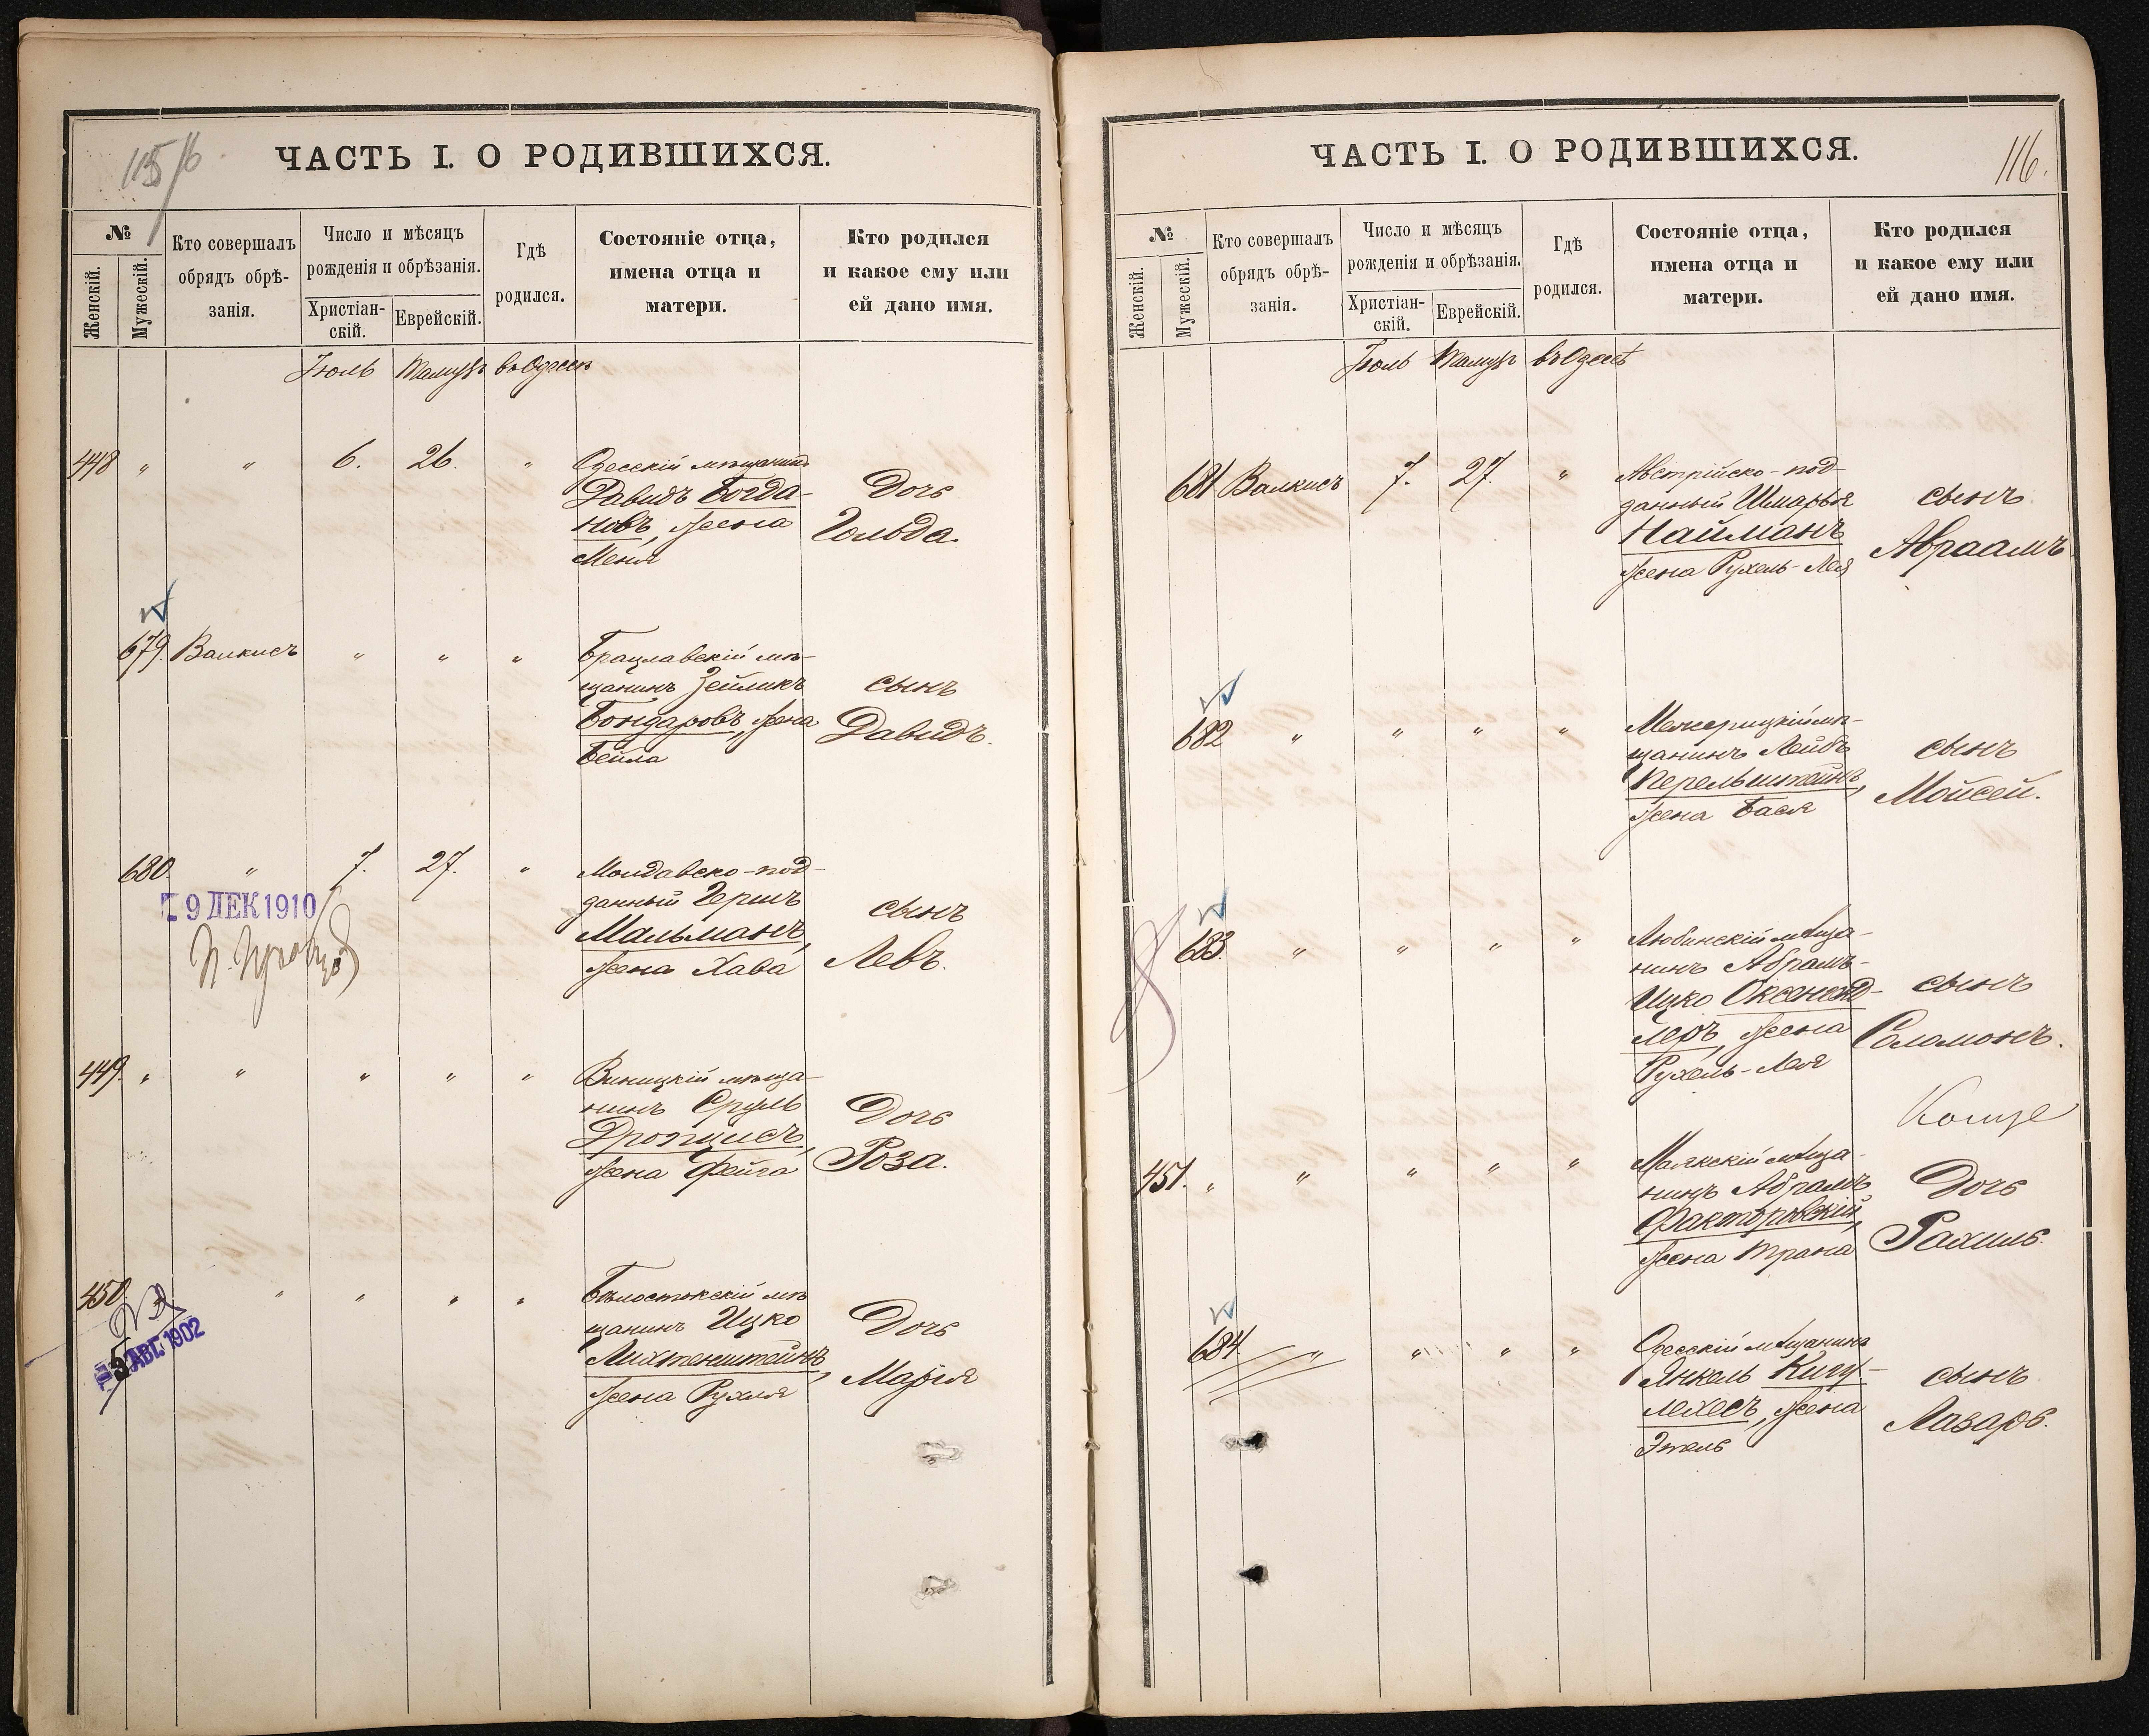 115/6
ЧАСТЬ I. О РОДИВШИХСЯ.
№
Женскій.
Мужескій.
Кто совершалъ
обрядъ обрѣ-
занія.
Число и мѣсяцъ
рожденія и обрѣзанія.
Христіан-
скій.
Еврейскій.
Гдѣ
родился.
Состояніе отца,
имена отца и
матери.
Кто родился
и какое ему или
ей дано имя.
Іюль Тамузъ въ Одессѣ
448 " " 6. 26. " Одесскій мѣщанинъ
Давидъ Богда-
новъ, жена
Меня
Дочь
Гольда.
679. Валкисъ " " " Брацлавскій мѣ-
щанинъ Зейликъ
Бондаровъ, жена
Бейла
сынъ
Давидъ.
680. " 7. 27. " Молдавско-под-
данный Гершъ
Мальманъ,
жена Хава
сынъ
Левъ.
9 ДЕК 1910
449. " " " " " Виницкій мѣща-
нинъ Сруль
Дропцисъ,
жена Фейга
Дочь
Роза.
450. " " " " Бѣлостокскій мѣ
щанинъ Ицко
Лихтенштейнъ,
жена Рухля
Дочь
Марія
5 АВГ. 1902
ЧАСТЬ I. О РОДИВШИХСЯ.
116.
№
Женскій.
Мужескій.
Кто совершалъ
обрядъ обрѣ-
занія.
Число и мѣсяцъ
рожденія и обрѣзанія.
Христіан-
скій.
Еврейскій.
Гдѣ
родился.
Состояніе отца,
имена отца и
матери.
Кто родился
и какое ему или
ей дано имя.
Іюль Тамузъ въ Одессѣ
681 Валкисъ 7. 27. " Австрійско-под-
данный Шмарья
Найманъ
жена Рухель-Лея
сынъ
Авраамъ
682 " " " " Межерицкій мѣ-
щанинъ Лейбъ
Перельштейнъ,
жена Бася
сынъ
Мойсей.
683. " " " " Любинскій мѣща-
нинъ Абрамъ-
Ицко Оксененд-
леръ, жена
Рухель-Лея
сынъ
Соломонъ.
451. " " " " " Маякскій мѣща-
нинъ Абрамъ
Факторовскій,
жена Трана
Дочь
Рахиль.
684. " " " " Одесскій мѣщанинъ
Янкель Кигу-
лехесъ, жена
Этель
сынъ
Лазарь.